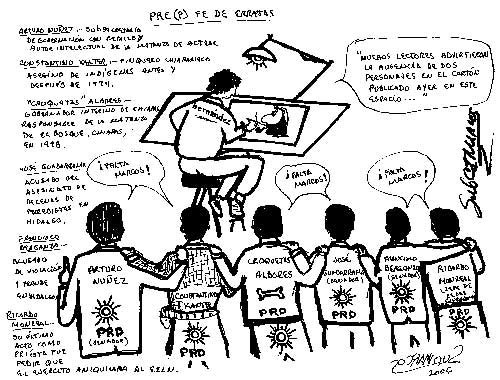 PRE(P) FE DE ERRATAS
ARTURO NUÑEZ.- SUBSECRETARIO
DE GOBERNACION CON ZEDILLO Y
AUTOR INTELECTUAL DE LA MATANZA DE ACTEAL
CONSTANTINO KANTER.- FINQUERO CHIAPANECO
ASESINO DE INDÍGENAS ANTES Y
DESPUÉS DE 1994.
"CROQUETAS" ALBORES.-
GOBERNADOR INTERINO DE CHIAPAS
RESPONSABLE DE LA MATANZA
DE EL BOSQUE, CHIAPAS,
EN 1998.
JOSÉ GUADARRAMA
ACUSADO DEL
ASESINATO DE
DECENAS DE
PERREDISTAS EN
HIDALGO.
FRANCISCO
ACUSADO
DE VIOLACIÓN
Y FRAUDE
RICARDO
MONREAL.-
SU ÚLTIMO
ACTO COMO
PRIISTA FUE
PEDIR QUE
EL EJÉRCITO ANIQUILARA AL EZLN.
"MUCHOS LECTORES ADVIRTIERON
LA AUSENCIA DE DOS
PERSONAJES EN EL CARTÓN
PUBLICADO AYER EN ESTE
ESPACIO..."
HERNÁNDEZ
¡FALTA
MARCOS!
¡FALTA
MARCOS!
¡FALTA
MARCOS!
ARTURO
NUÑEZ
PRD
(SENADOR)
CONSTANTINO
KANTER
PRD
CROQUETAS
ALBORES
PRD
JOSÉ
GUADARRAMA
(SENADOR)
PRD
FRANCISCO
(SENADOR)
PRD
RICARDO
MONREAL
PRD
2006